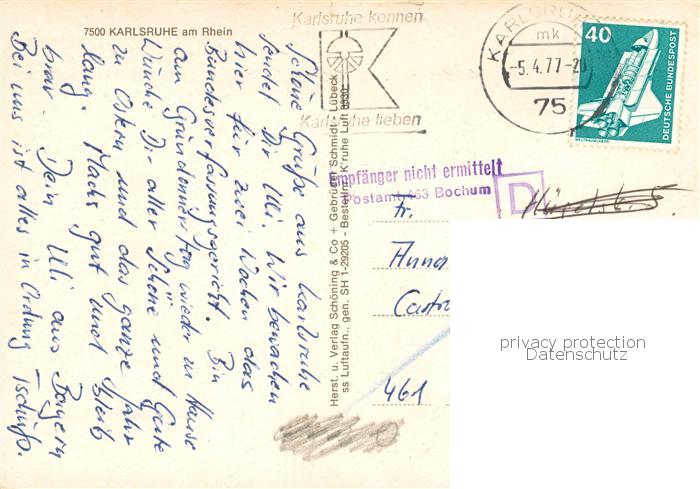 7500 KARLSRUHE am Rhein
Karlsruhe können
Karlsruhe lieben
KARLSRUHE
mk
-5.4.77-20
75
40
DEUTSCHE BUNDESPOST
WELTRAUMLABOR
Empfänger nicht ermittelt
Postamt 463 Bochum
D
Schöne Grüße aus Karlsruhe
sendet Dir Uli. Wir bewachen
hier für zwei Wochen das
Bundesverfassungsgericht. Bin
am Gründonnerstag wieder zu Hause
Wünsche Dir alles Schöne und Gute
zu Ostern und das ganze Jahr
lang. Machs gut und bleib
brav. Dein Uli aus Bayern
Bei uns ist alles in Ordnung Tschüß.
Herst. u. Verlag Schöning & Co + Gebrüder Schmidt, Lübeck
ss Luftaufn., gen. SH 1-29205 - Bestellnr. K'ruhe Luft
Fr.
461
privacy protection
Datenschutz